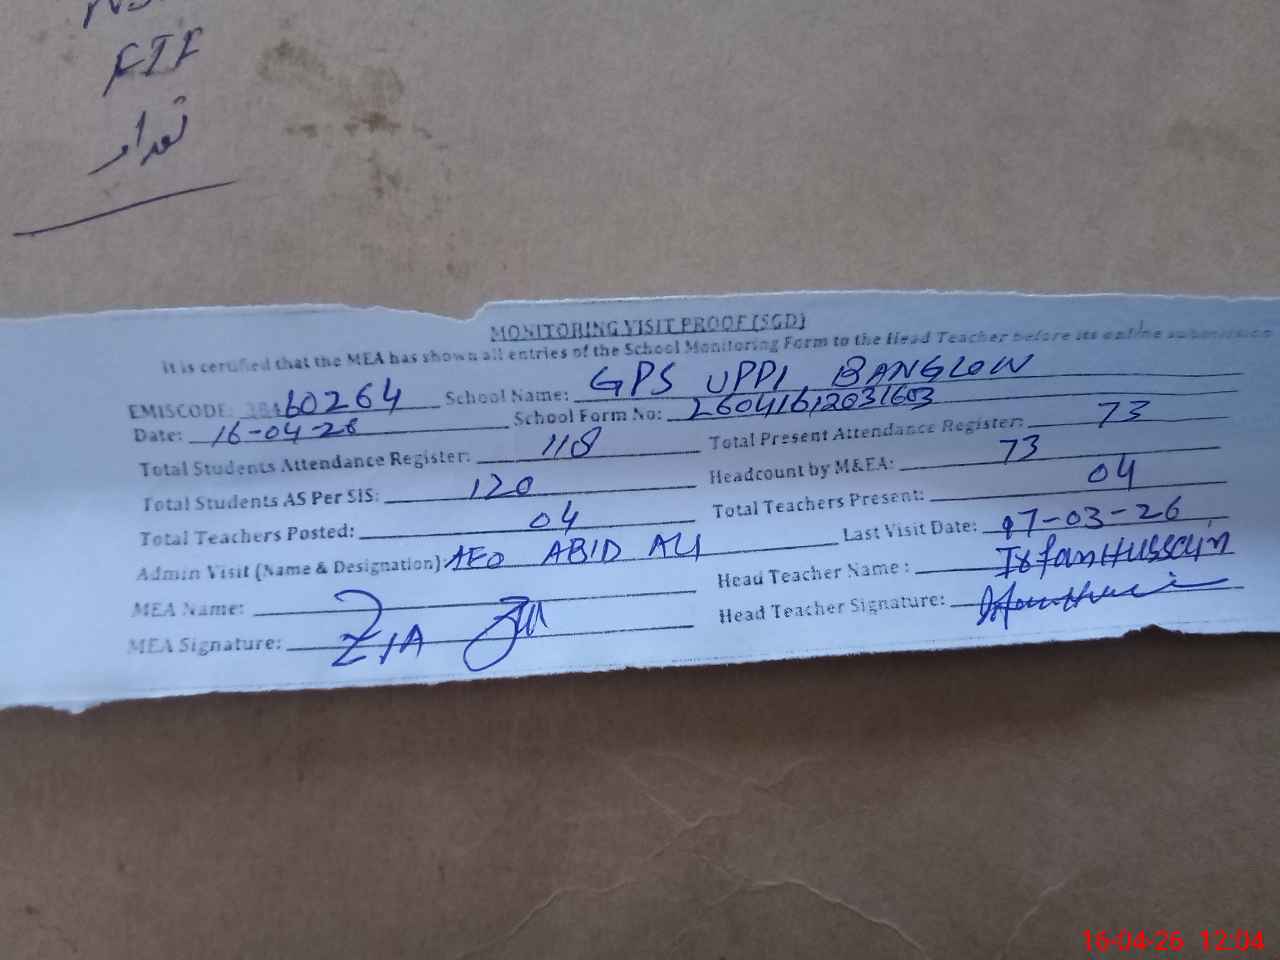 FTF
تعداد
MONITORING VISIT PROOF (SGD)
It is certified that the MEA has shown all entries of the School Monitoring Form to the Head Teacher before its online submission
EMISCODE: 38460264 School Name: GPS UPPI BANGLOW
Date: 16-04-26 School Form No: 26041612031603
Total Students Attendance Register: 118 Total Present Attendance Register: 73
Total Students AS Per SIS: 120 Headcount by M&EA: 73
Total Teachers Posted: 04 Total Teachers Present: 04
Admin Visit (Name & Designation) AEO ABID ALI Last Visit Date: 97-03-26
MEA Name: Head Teacher Name : Irfan Hussain
MEA Signature: ZIA Head Teacher Signature:
16-04-26 12:04